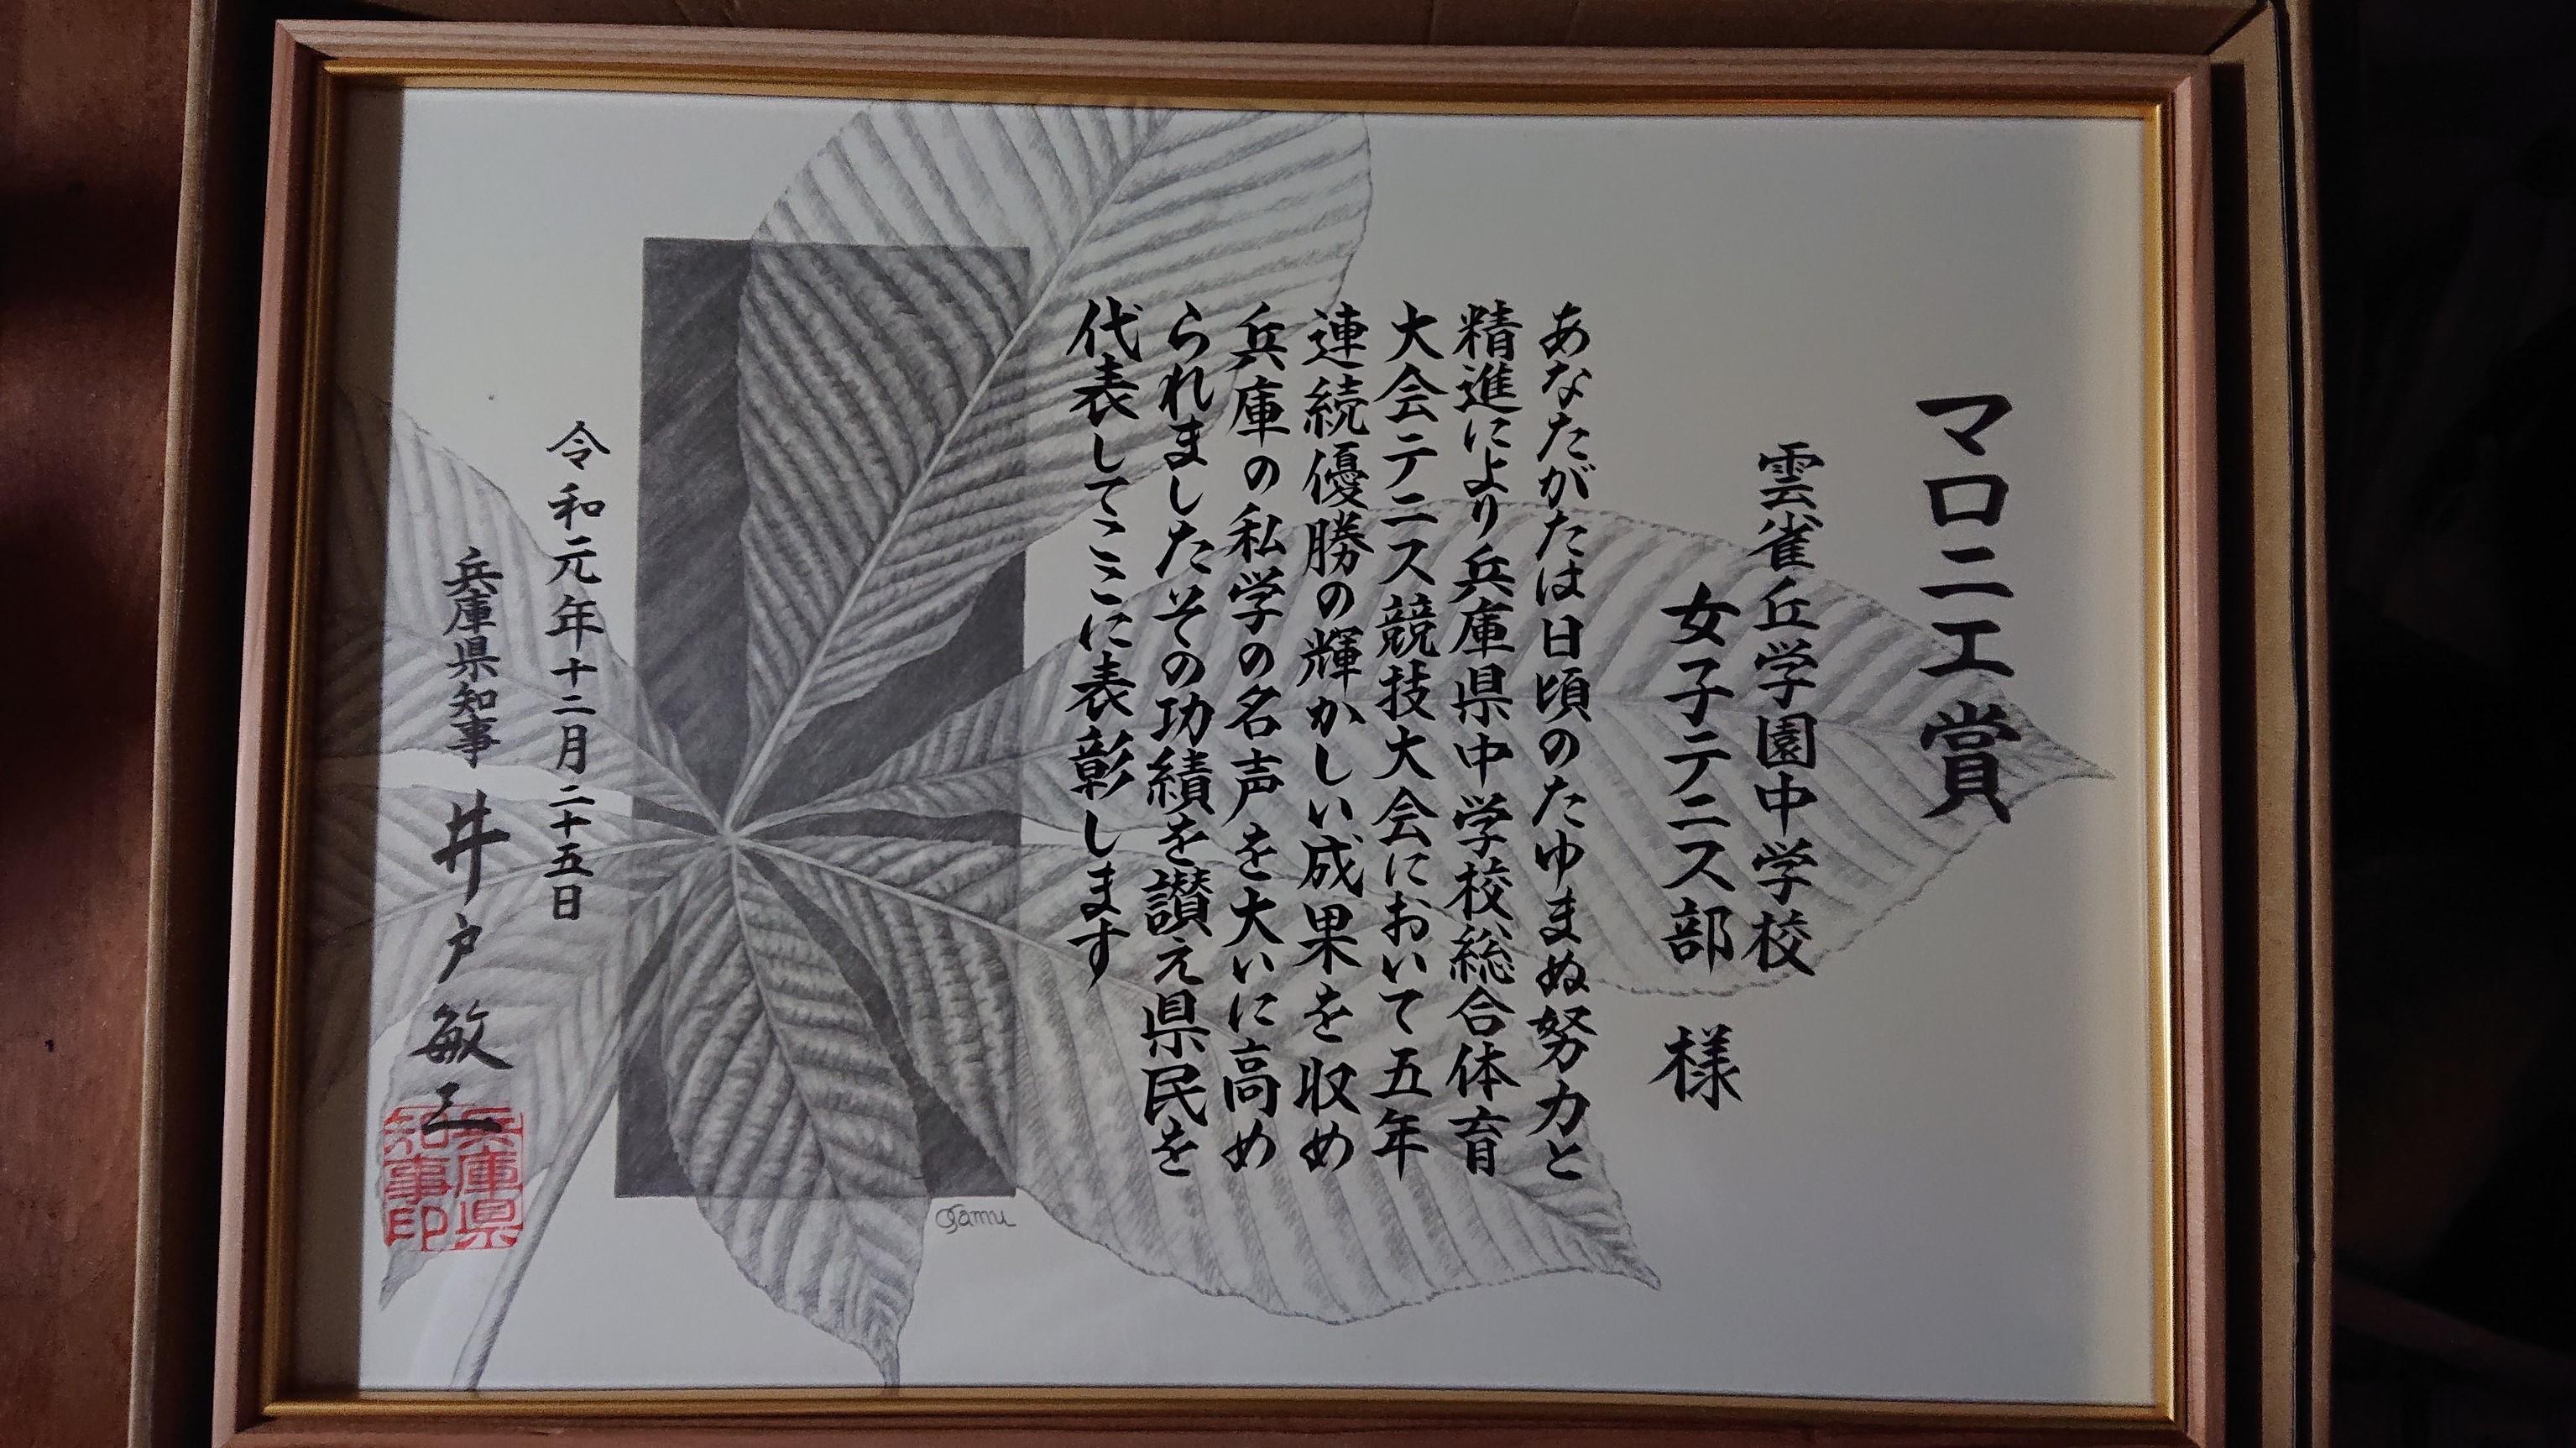 マロニエ賞
雲雀丘学園中学校
女子テニス部 様
あなたがたは日頃のたゆまぬ努力と
精進により兵庫県中学校総合体育
大会テニス競技大会において五年
連続優勝の輝かしい成果を収め
兵庫の私学の名声を大いに高め
られましたその功績を讃え県民を
代表してここに表彰します
令和元年十二月二十五日
兵庫県知事 井戸敏三
兵庫県
知事印
Osamu